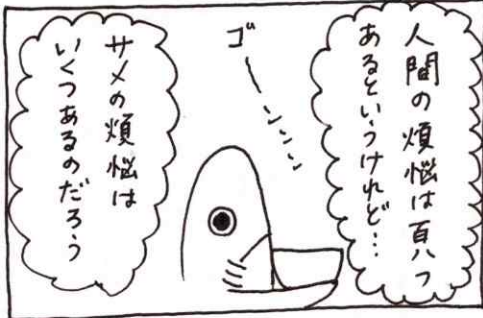 人間の煩悩は百八つ
あるというけれど…
ゴーンンンン
サメの煩悩は
いくつあるのだろう